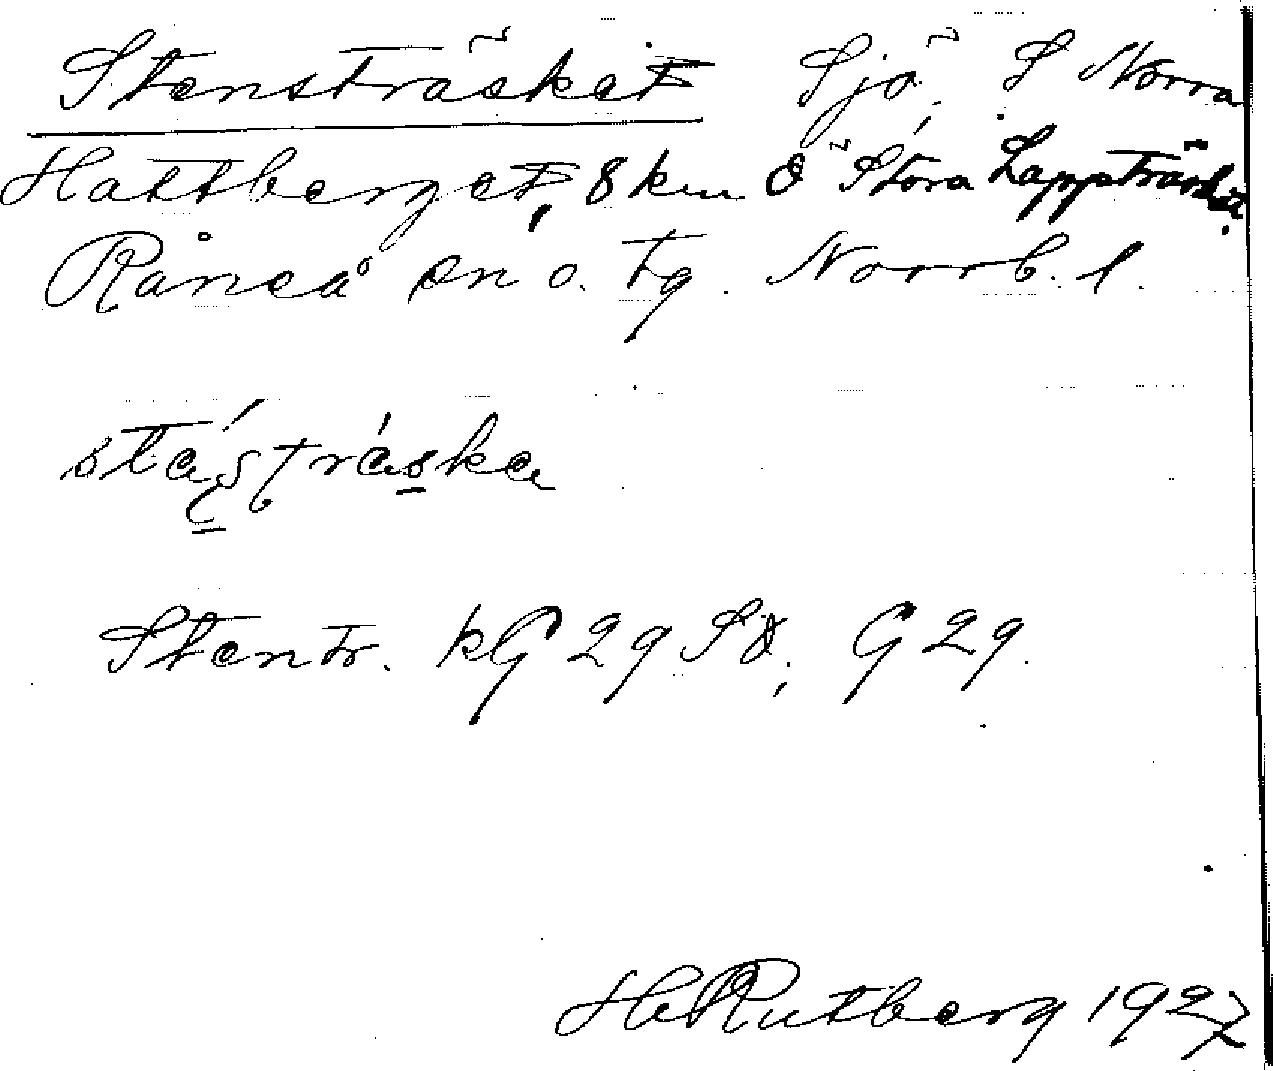 Stensträsket Sjö, S Norra
Hattberget, 8 km Ö Stora Lappträsket.
Råneå sn o. tg. Norrb. l.
Stentr. kG 29 SO, G 29.
H. Rutberg 1927